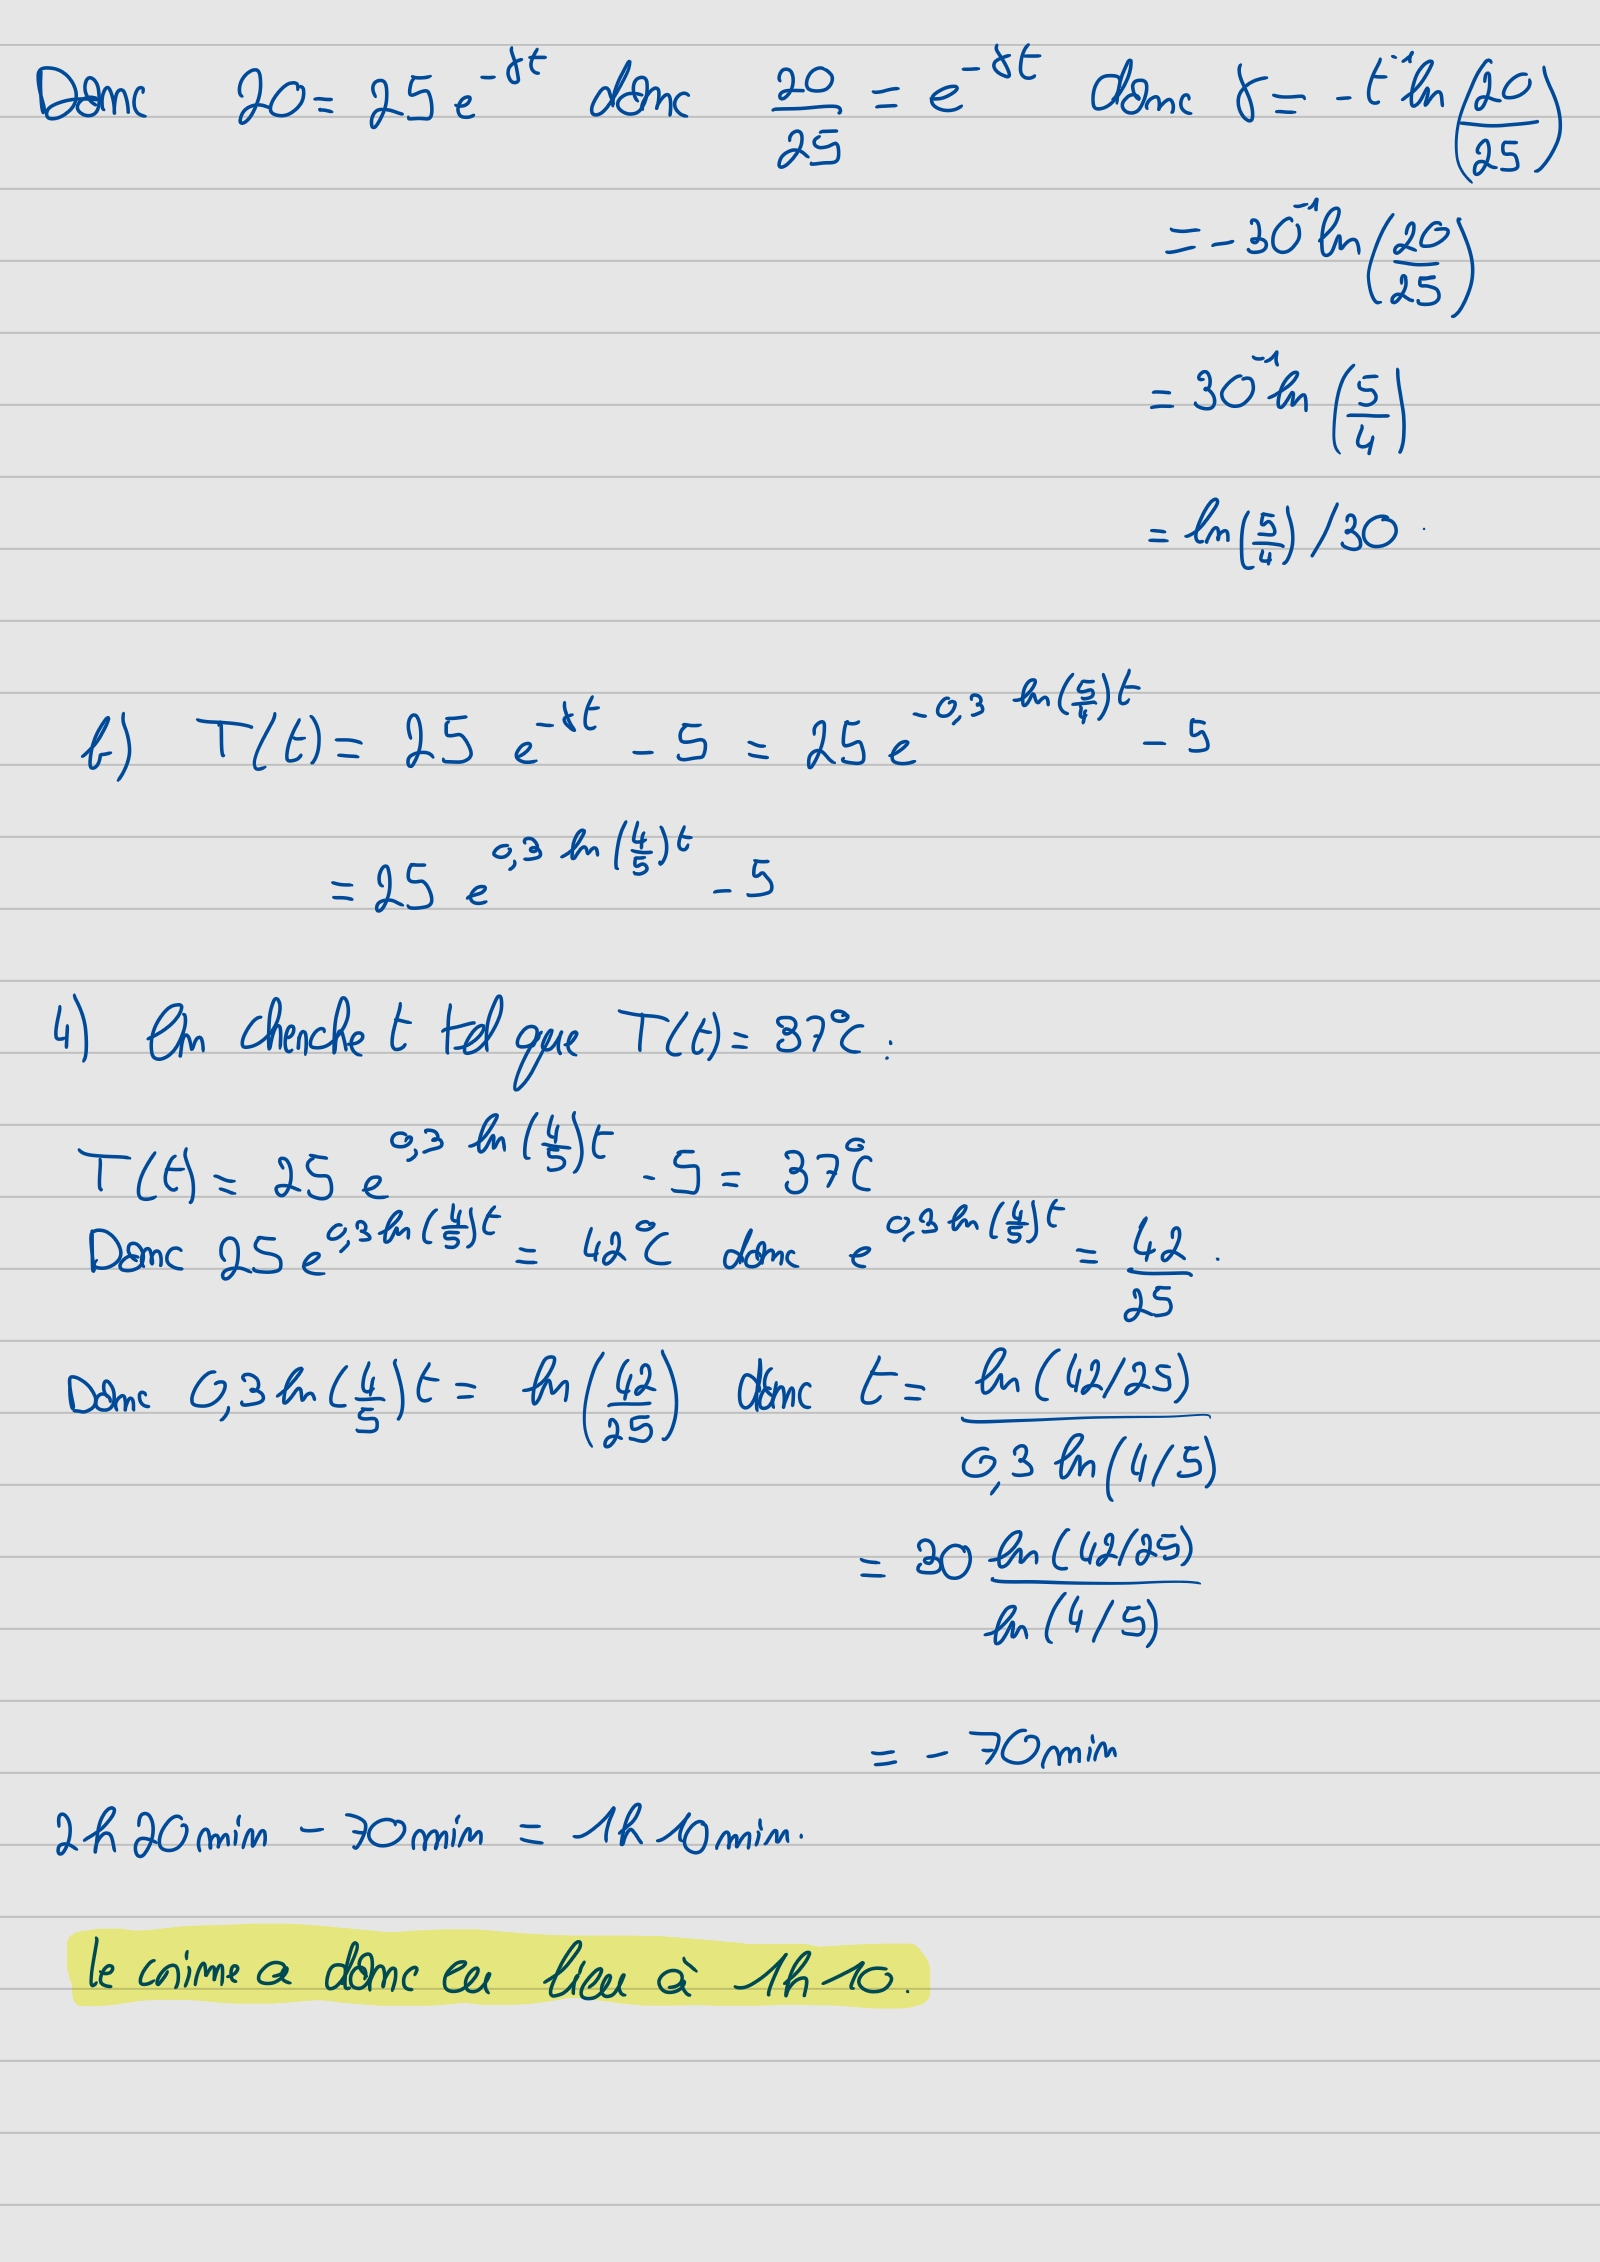 Donc 20 = 25 e^{-γt} donc 20/25 = e^{-γt} donc γ = -t^{-1} ln(20/25)
= -30^{-1} ln(20/25)
= 30^{-1} ln(5/4)
= ln(5/4) /30.
b) T(t) = 25 e^{-γt} - 5 = 25 e^{-0,3 ln(5/4)t} - 5
= 25 e^{0,3 ln(4/5)t} - 5
4) On cherche t tel que T(t) = 37°C :
T(t) = 25 e^{0,3 ln(4/5)t} - 5 = 37°C
Donc 25 e^{0,3 ln(4/5)t} = 42°C donc e^{0,3 ln(4/5)t} = 42/25.
Donc 0,3 ln(4/5)t = ln(42/25) donc t = ln(42/25) / 0,3 ln(4/5)
= 30 ln(42/25) / ln(4/5)
= - 70 min
2h 20 min - 70 min = 1h 10 min.
le crime a donc eu lieu à 1h10.